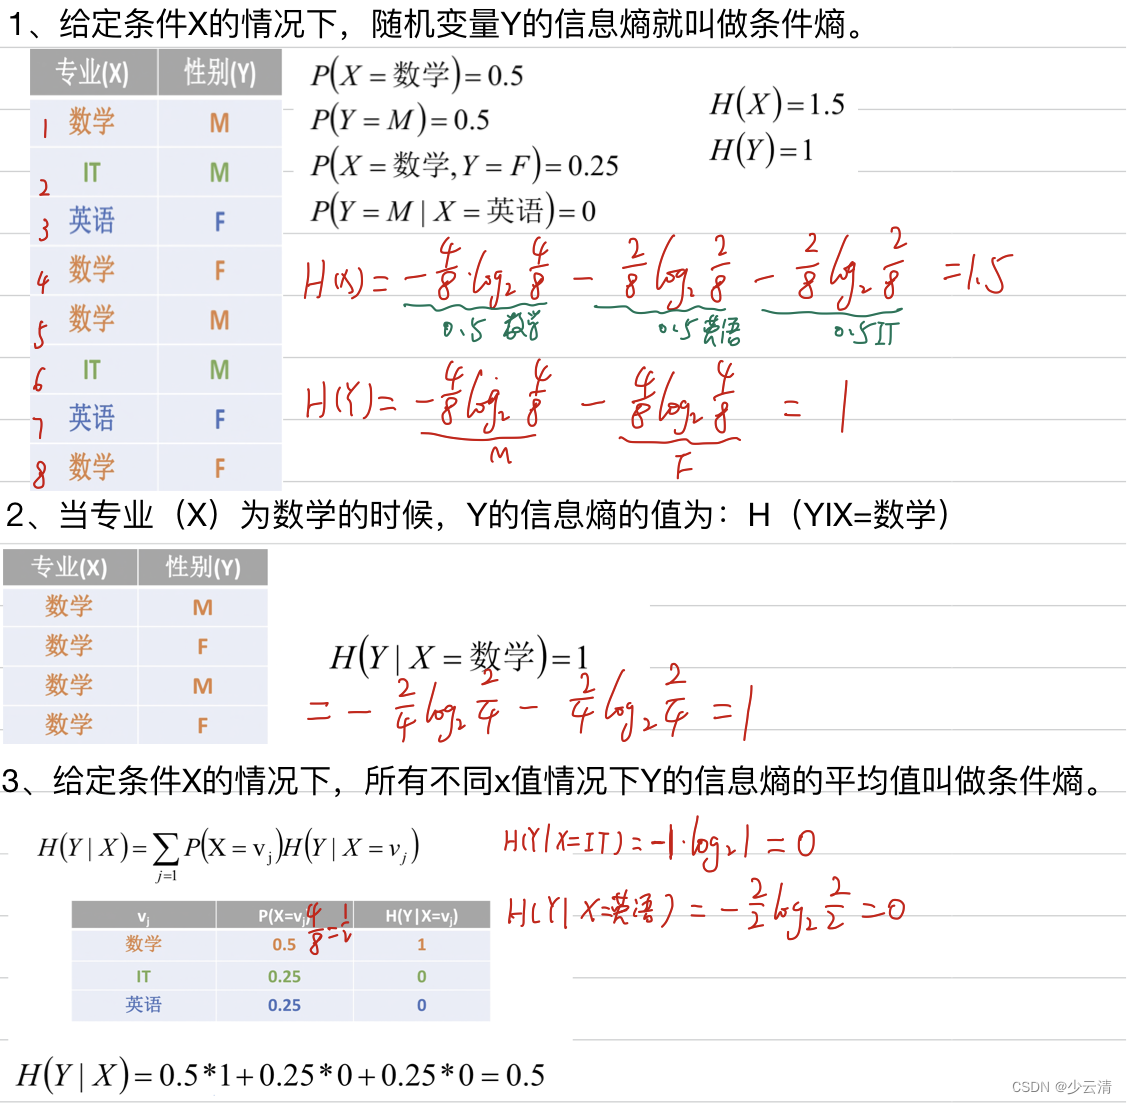 1、给定条件X的情况下，随机变量Y的信息熵就叫做条件熵。
专业(X) 性别(Y)
1 数学 M
2 IT M
3 英语 F
4 数学 F
5 数学 M
6 IT M
7 英语 F
8 数学 F
P(X = 数学)=0.5
P(Y = M)=0.5
P(X = 数学,Y = F)=0.25
P(Y = M | X = 英语)=0
H(X)=1.5
H(Y)=1
H(X) = -4/8·log₂4/8 - 2/8log₂2/8 - 2/8log₂2/8 =1.5
0.5 数学 0.5英语 0.5IT
H(Y)= -4/8log₂4/8 - 4/8log₂4/8 = 1
M F
2、当专业（X）为数学的时候，Y的信息熵的值为：H（YIX=数学）
专业(X) 性别(Y)
数学 M
数学 F
数学 M
数学 F
H(Y | X = 数学)=1
= - 2/4log₂2/4 - 2/4log₂2/4 = 1
3、给定条件X的情况下，所有不同x值情况下Y的信息熵的平均值叫做条件熵。
H(Y | X)=∑j=1 P(X = vj)H(Y | X = vj)
H(Y|X=IT)=-1·log₂1=0
H(Y|X=英语)=-2/2log₂2/2=0
vj P(X=vj) H(Y|X=vj)
4/8=1/2
数学 0.5 1
IT 0.25 0
英语 0.25 0
H(Y | X)= 0.5*1+0.25*0+0.25*0 = 0.5
CSDN @少云清